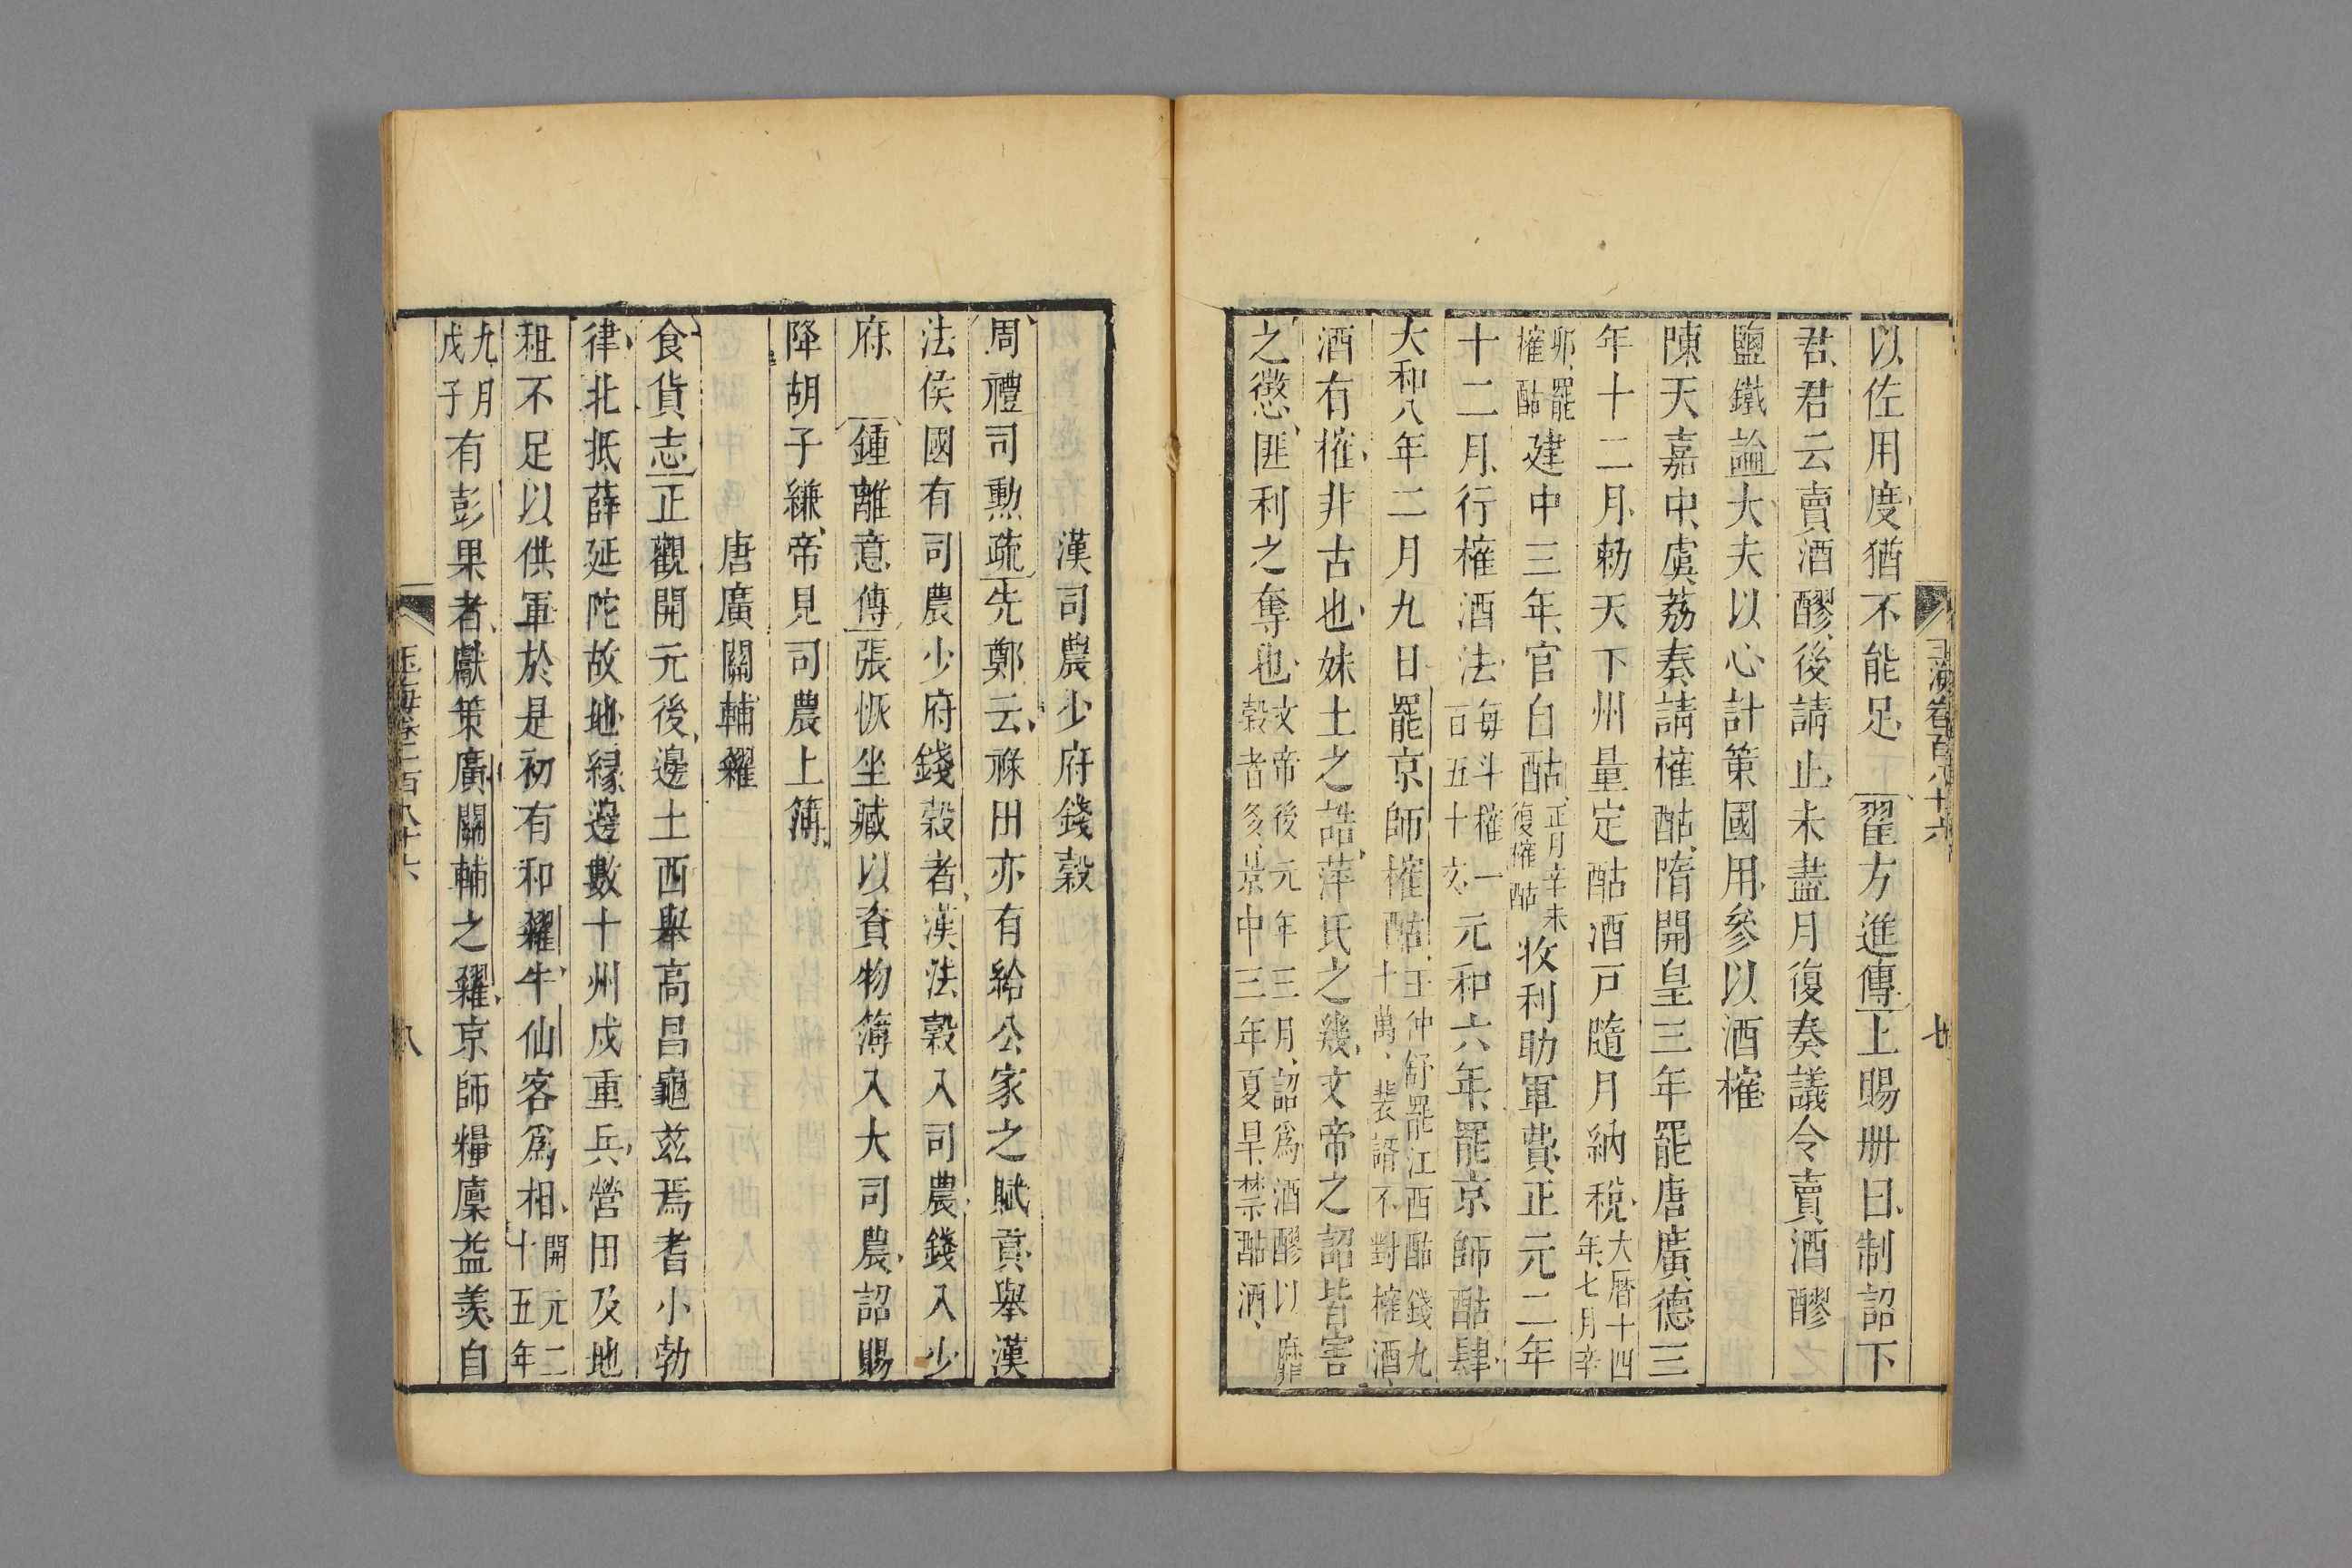 玉海卷百八十六
七
以佐用度猶不能足翟方進傳上賜册曰制詔下
君君云賣酒醪後請止未盡月復奏議令賣酒醪
鹽鐵論大夫以心計策國用參以酒榷
陳天嘉中虞荔奏請榷酤隋開皇三年罷唐廣德三
年十二月勑天下州量定酤酒戸隨月納稅大曆十四年七月辛
卯罷榷酤建中三年官自酤正月辛未復榷酤收利助軍費正元二年
十二月行榷酒法每斗榷一百五十文元和六年罷京師酤肆
大和八年二月九日罷京師榷酤王仲舒罷江西酤錢九十萬裴諝不對榷酒
酒有榷非古也妹土之誥萍氏之幾文帝之詔皆害
之懲匪利之奪也文帝後元年三月詔爲酒醪以靡穀者多景中三年夏旱禁酤酒
漢司農少府錢穀
周禮司勲疏先鄭云祿田亦有給公家之賦貢舉漢
法侯國有司農少府錢穀者漢法穀入司農錢入少
府 鍾離意傳張恢坐臧以資物簿入大司農詔賜
降胡子縑帝見司農上簿
唐廣關輔糴
食貨志正觀開元後邊土西舉高昌龜兹焉耆小勃
律北抵薛延陀故地緣邊數十州戍重兵營田及地
租不足以供軍於是初有和糴牛仙客爲相開元二十五年
九月戊子有彭果者獻策廣關輔之糴京師糧廩益羡自
玉海卷一百八十六
八